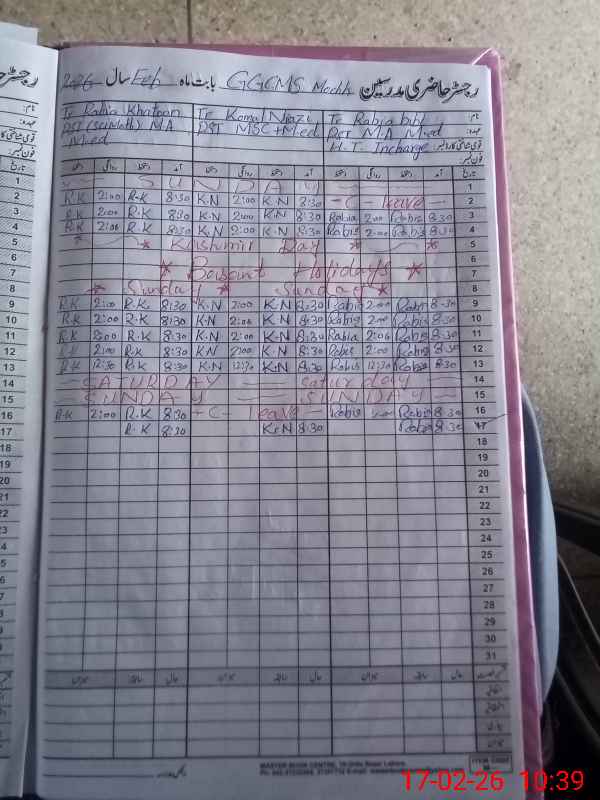 رجسٹر حاضری مدرسین GGCMS Mochh بابت ماہ Feb سال 2026
نام: Te Rabia Khatoon Te Komal Niazi Te Rabia bibi
عہدہ: PST (Sci Math) M.A PST MSC + M.ed PST M.A M.ed
M.ed H.T. Incharge
فون نمبر:
تاریخ آمد دستخط روانگی دستخط آمد دستخط روانگی دستخط آمد دستخط روانگی دستخط
1 SUNDAY 1
2 R.K 2:00 R.K 8:30 K.N 2:00 K.N 8:30 - C - leave - 2
3 R.K 2:00 R.K 8:30 K.N 2:00 K.N 8:30 Rabia 2:00 Rabis 8:30 3
4 R.K 2:00 R.K 8:30 K.N 2:00 K.N 8:30 Rabis 2:00 Rabis 8:30 4
5 * Kashmir Day * * 5
6 6
7 * Basant Holidays * 7
8 * Sunday * Sunday * 8
9 R.K 2:00 R.K 8:30 K.N 2:00 K.N 8:30 Rabis 2:00 Rabis 8:30 9
10 R.K 2:00 R.K 8:30 K.N 2:00 K.N 8:30 Rabis 2:00 Rabis 8:30 10
11 R.K 2:00 R.K 8:30 K.N 2:00 K.N 8:30 Rabia 2:00 Rabis 8:30 11
12 R.K 2:00 R.K 8:30 K.N 2:00 K.N 8:30 Rabis 2:00 Rabis 8:30 12
13 R.K 12:30 R.K 8:30 K.N 12:30 K.N 8:30 Rabis 12:30 Rabis 8:30 13
14 - SATURDAY - - saturday - 14
15 - SUNDAY - - SUNDAY - 15
16 R.K 2:00 R.K 8:30 - C - leave - Rabis Rabis 8:30 16
17 R.K 8:30 K.N 8:30 Rabis 8:30 17
18 18
19 19
20 20
21 21
22 22
23 23
24 24
25 25
26 26
27 27
28 28
29 29
30 30
31 31
میزان سابقہ حال میزان سابقہ حال میزان سابقہ حال
اتفاقی
میزان
MASTER BOOK CENTRE, Urdu Bazar Lahore.
ITEM CODE
17-02-26 10:39